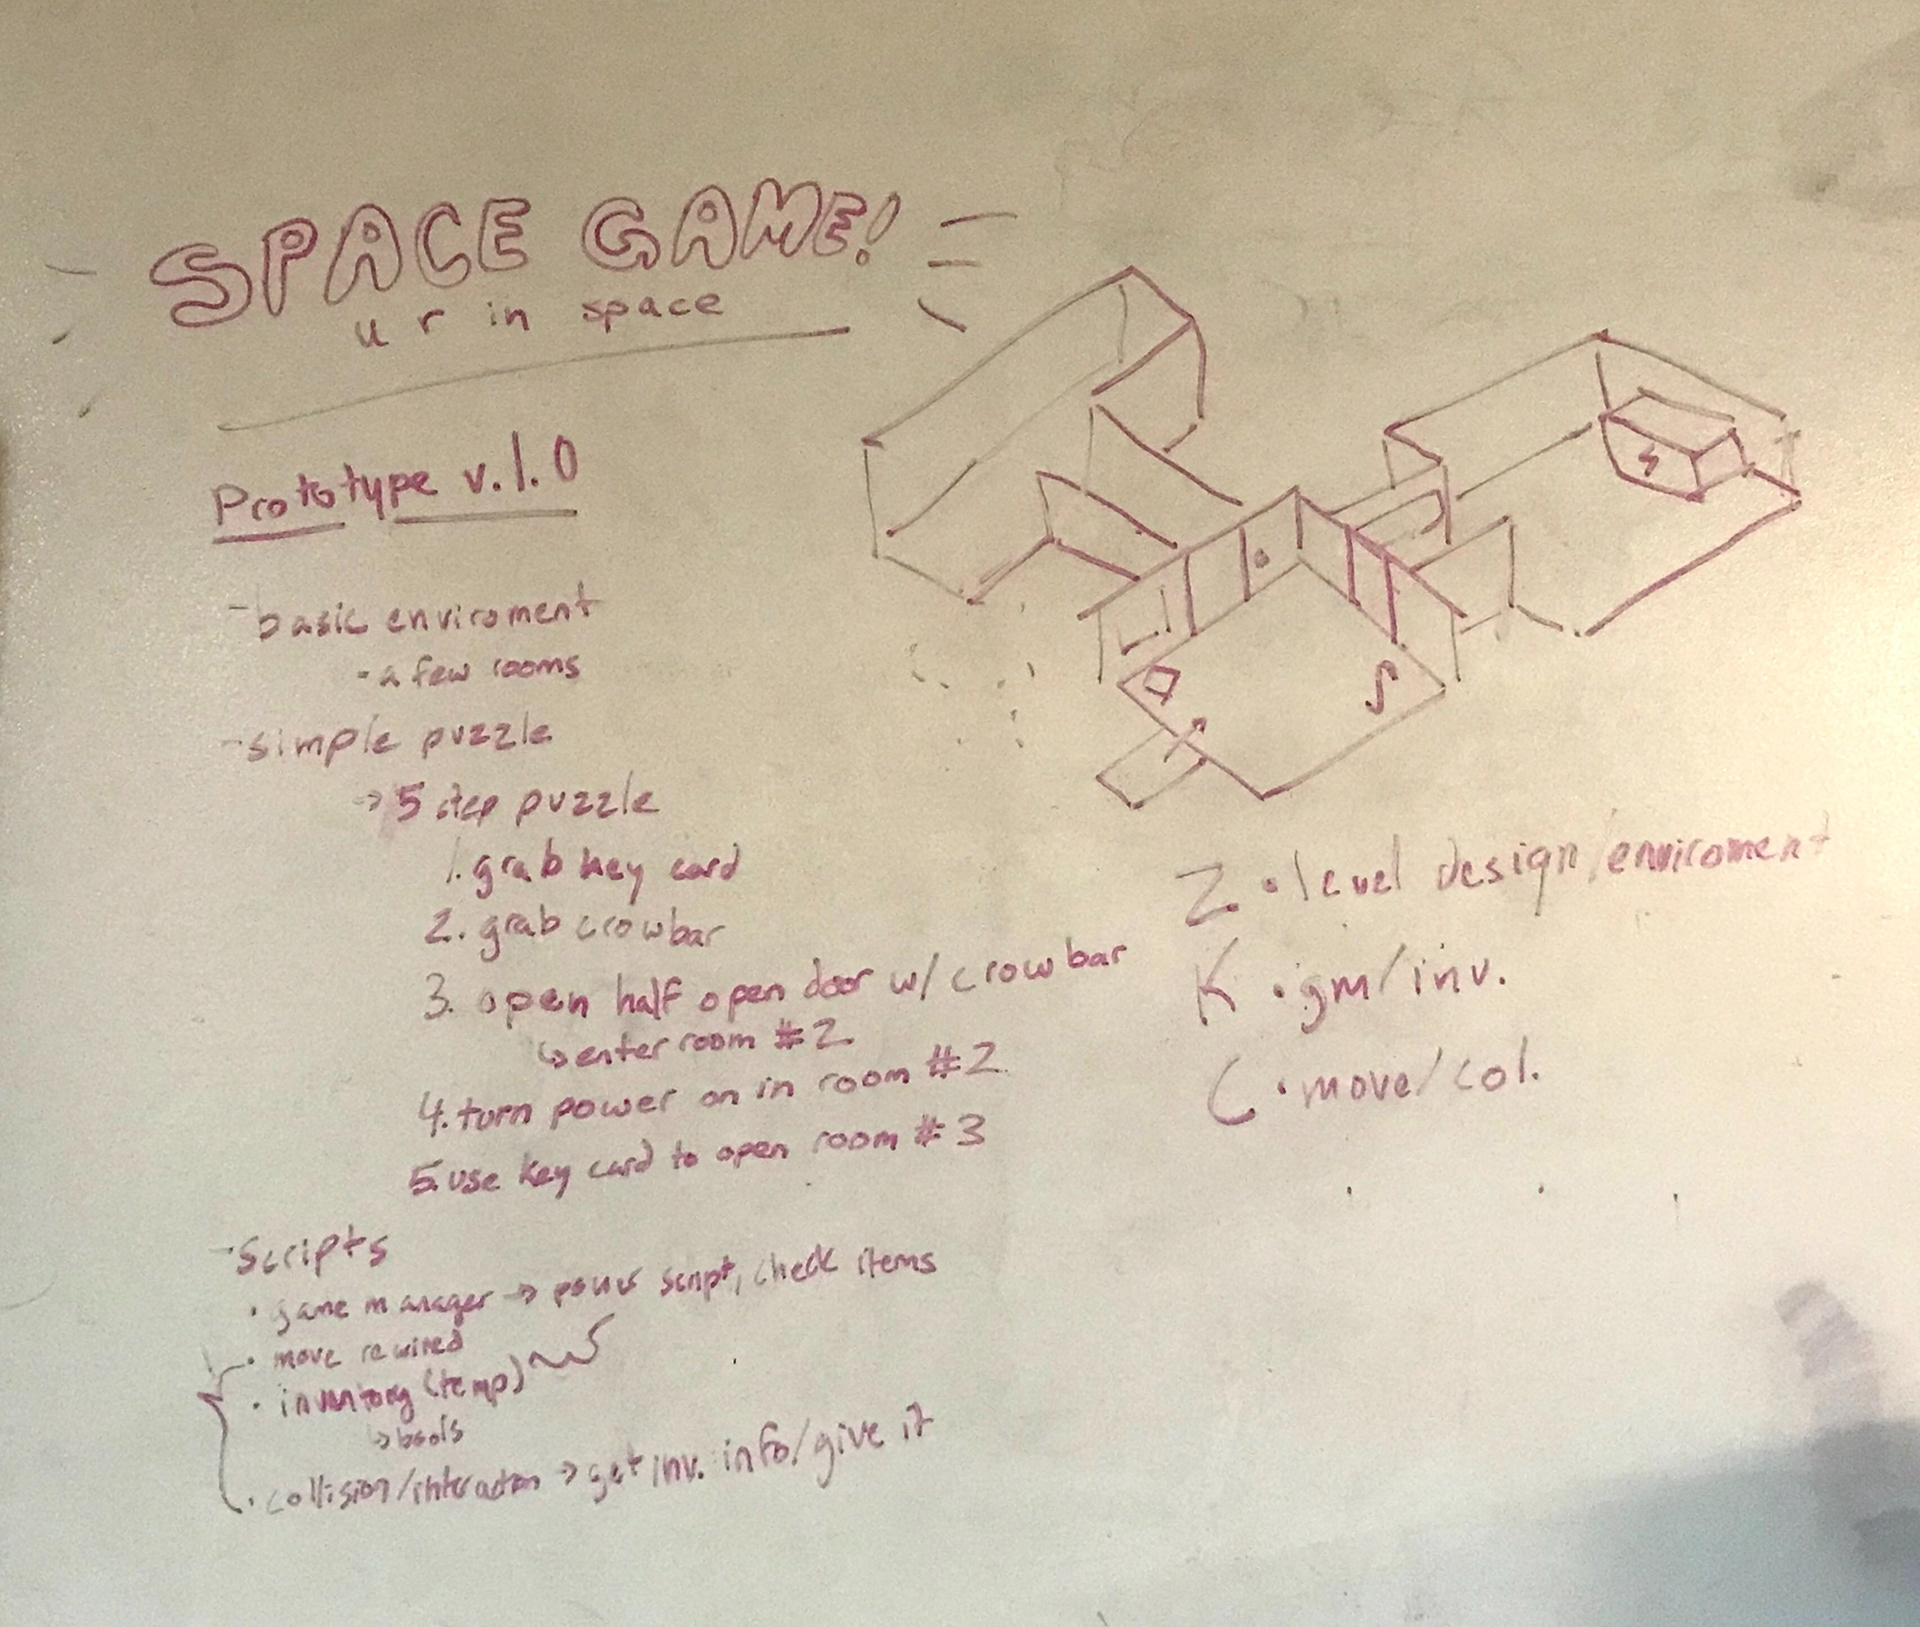 SPACE GAME!
u r in space
Prototype v.1.0
- basic enviroment
- a few rooms
- simple puzzle
→ 5 step puzzle
1. grab key card
2. grab crowbar
3. open half open door w/ crowbar
↳ enter room #2
4. turn power on in room #2
5. use key card to open room #3
- Scripts
• game manager → power script, check items
• move rewired
• inventory (temp)
↳ bools
• collision/interaction → get inv. info/give it
Z • level design/enviroment
K • gm/inv.
C • move/col.